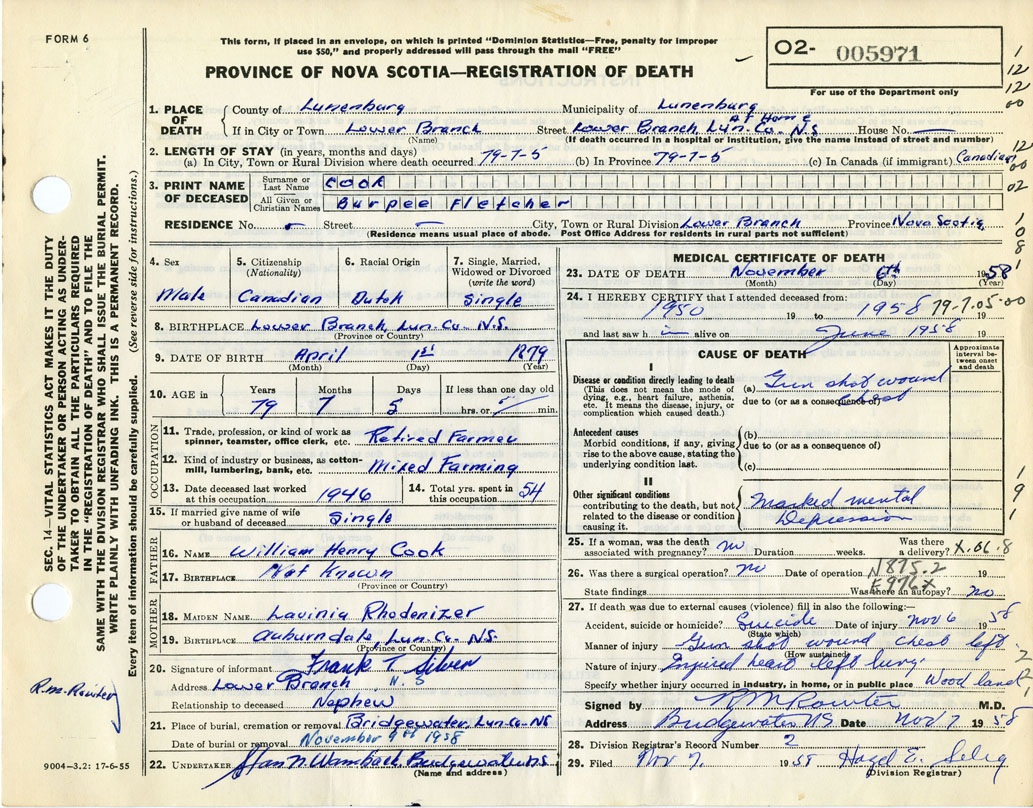 FORM 6
This form, if placed in an envelope, on which is printed "Dominion Statistics—Free, penalty for improper
use $50," and properly addressed will pass through the mail "FREE"
PROVINCE OF NOVA SCOTIA—REGISTRATION OF DEATH
O2- 005971
For use of the Department only
1. PLACE OF DEATH { County of Lunenburg Municipality of Lunenburg
At Home
If in City or Town Lower Branch Street Lower Branch, Lun. Co. N.S House No. —
(Name) (If death occurred in a hospital or institution, give the name instead of street and number)
2. LENGTH OF STAY (in years, months and days)
(a) In City, Town or Rural Division where death occurred 79-7-5 (b) In Province 79-7-5 (c) In Canada (if immigrant) Canadian
3. PRINT NAME OF DECEASED
Surname or Last Name Cook
All Given or Christian Names Burpee Fletcher
RESIDENCE No. - Street - City, Town or Rural Division Lower Branch Province Nova Scotia
(Residence means usual place of abode. Post Office Address for residents in rural parts not sufficient)
4. Sex
Male
5. Citizenship (Nationality)
Canadian
6. Racial Origin
Dutch
7. Single, Married, Widowed or Divorced (write the word)
Single
8. BIRTHPLACE Lower Branch, Lun. Co. N.S.
(Province or Country)
9. DATE OF BIRTH April 1st 1879
(Month) (Day) (Year)
10. AGE in { Years Months Days If less than one day old
79 7 5 hrs. or min.
OCCUPATION
11. Trade, profession, or kind of work as spinner, teamster, office clerk, etc. Retired Farmer
12. Kind of industry or business, as cotton-mill, lumbering, bank, etc. Mixed Farming
13. Date deceased last worked at this occupation 1946
14. Total yrs. spent in this occupation 54
15. If married give name of wife or husband of deceased Single
FATHER
16. NAME William Henry Cook
17. BIRTHPLACE Not Known
(Province or Country)
MOTHER
18. MAIDEN NAME Lavinia Rhodenizer
19. BIRTHPLACE Auburndale, Lun. Co. N.S.
(Province or Country)
20. Signature of informant Frank T. Silver
Address Lower Branch N.S
Relationship to deceased Nephew
21. Place of burial, cremation or removal Bridgewater Lun. Co. NS
Date of burial or removal November 9th 1958
22. UNDERTAKER Bridgewater NS
(Name and address)
MEDICAL CERTIFICATE OF DEATH
23. DATE OF DEATH November 6th 1958
(Month) (Day) (Year)
24. I HEREBY CERTIFY that I attended deceased from:
1950 19 to 1958 19
79.7.05.00
and last saw him alive on June 1958 19
CAUSE OF DEATH
Approximate interval between onset and death
I
Disease or condition directly leading to death
(This does not mean the mode of dying, e.g., heart failure, asthenia, etc. It means the disease, injury, or complication which caused death.)
(a) Gun shot wound
due to (or as a consequence of) chest
Antecedent causes
Morbid conditions, if any, giving rise to the above cause, stating the underlying condition last.
(b)
due to (or as a consequence of)
(c)
II
Other significant conditions contributing to the death, but not related to the disease or condition causing it.
Marked mental
Depression
25. If a woman, was the death associated with pregnancy? no Duration weeks. Was there a delivery?
X.06.8
26. Was there a surgical operation? no Date of operation 19
N875.2
E976X
State findings Was there an autopsy? no
27. If death was due to external causes (violence) fill in also the following:—
Accident, suicide or homicide? Suicide Date of injury Nov 6 1958
(State which)
Manner of injury Gun shot wound chest left
(How sustained)
Nature of injury Injured heart left lung
Specify whether injury occurred in industry, in home, or in public place Wood land
Signed by R M Rowter M.D.
Address Bridgewater NS Date Nov 7 1958
28. Division Registrar's Record Number 2
29. Filed Nov 7. 1958 Hazel E. Selig
(Division Registrar)
SEC. 14—VITAL STATISTICS ACT MAKES IT THE DUTY
OF THE UNDERTAKER OR PERSON ACTING AS UNDER-
TAKER TO OBTAIN ALL THE PARTICULARS REQUIRED
IN THE "REGISTRATION OF DEATH" AND TO FILE THE
SAME WITH THE DIVISION REGISTRAR WHO SHALL ISSUE THE BURIAL PERMIT.
WRITE PLAINLY WITH UNFADING INK. THIS IS A PERMANENT RECORD.
Every item of information should be carefully supplied. (See reverse side for instructions.)
9004-3.2: 17-6-55
1
12
12
00
12
00
02
1
0
8
1
9
1
2
2